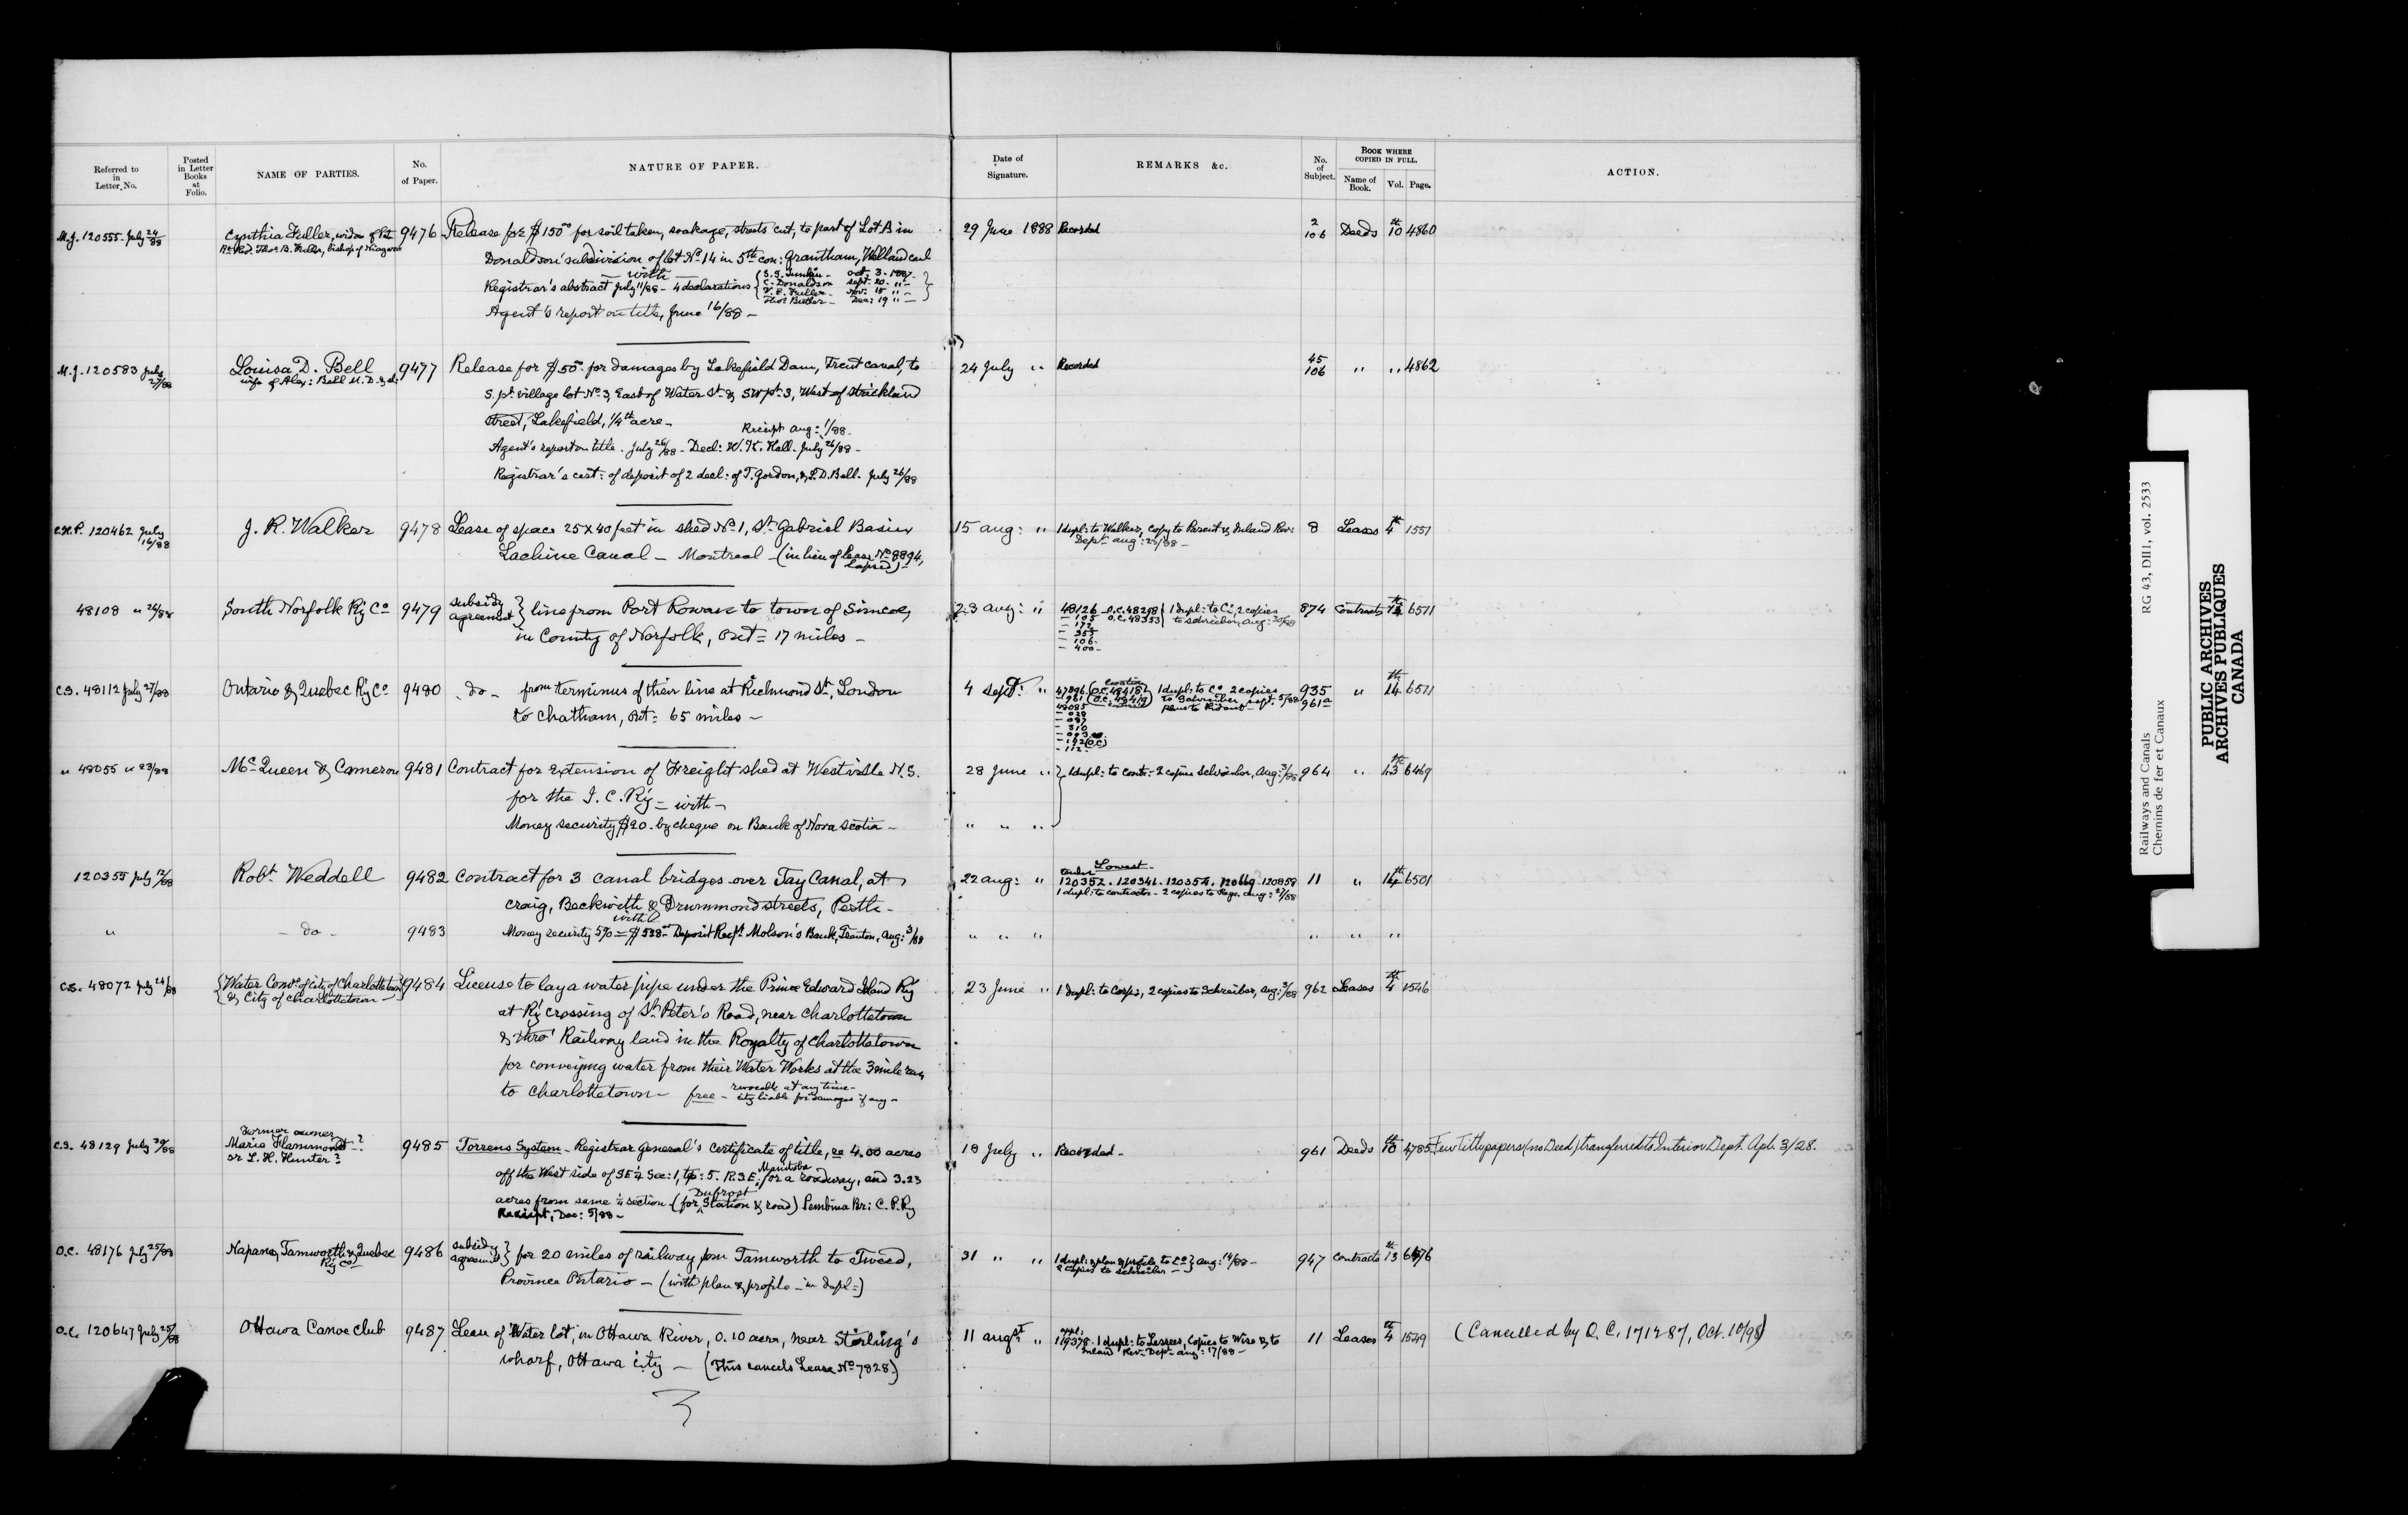 Referred to in Letter No.
Posted in Letter Books at Folio.
NAME OF PARTIES.
No. of Paper.
NATURE OF PAPER.
Date of Signature.
REMARKS &c.
No. of Subject.
BOOK WHERE COPIED IN FULL.
Name of Book. Vol. Page.
ACTION.
M.J. 120555 July 24/88 Cynthia Fuller, widow of late 9476 Release for $150.00 for soil taken, soakage, streets cut, to part of Lot A in 29 June 1888 Recorded 2 106 Deeds 10th 4860
Rt. Rev. Thos. B. Fuller, bishop of Niagara
Donaldson's subdivision of lot No 14 in 5th con: Grantham, Welland canl
- with -
Registrar's abstract July 11/88 - 4 declarations { S.S. Junkin - Oct. 3. 1887 -
C. Donaldson Sept. 20. " -
V. E. Fuller - Nov. 15 " -
Thos. Butler - Dec: 19 " - }
Agent's report on title, June 16/88 -
M.J. 120583 July 27/88 Louisa D. Bell 9477 Release for $50.- for damages by Lakefield Dam, Trent canal, to 24 July " Recorded 45 106 " " 4862
wife of Alex: Bell M.D. & al:
S. pt. village lot No 3, East of Water St. & SW pt. 3, West of Strickland
Street, Lakefield, 1/4th acre -
Receipt Aug: 1/88 -
Agent's report on title. July 26/88 - Decl: W. H. Hall. July 26/88 -
Registrar's cert: of deposit of 2 decl: of T. Gordon, & L. D. Bell. July 26/88
C.H.P. 120462 July 16/88 J. R. Walker 9478 Lease of space 25 x 40 feet in shed No 1, St. Gabriel Basin 15 aug: " 1 dupl: to Walker, copy to Parent & Inland Rev: 8 Leases 4th 1551
Dept. aug: 22/88 -
Lachine Canal - Montreal - (in lieu of lease No 8894, lapsed) -
48108 " 26/88 South Norfolk Ry Co 9479 subsidy agreement } line from Port Rowan to town of Simcoe, 23 aug: " 48126 O.C. 48298 1 dupl: to Co, 2 copies 874 Contracts 6511
O.C. 48353 to Schreiber, aug: 30/88
in County of Norfolk, Ont = 17 miles -
C.S. 48112 July 27/88 Ontario & Quebec Ry Co 9480 - do - from terminus of their line at Richmond St., London 4 Sept: " 47896 O.C. 48418 1 dupl: to Co 2 copies 935 " 14th 6511
O.C. 48419 to Schreiber, sept. 5/88 961a
to Chatham, Ont = 65 miles -
" 48055 " 23/88 McQueen & Cameron 9481 Contract for extension of Freight shed at Westville N.S. 28 June " 1 dupl: to contr: 2 copies Schreiber, Aug: 3/88 964 " 13th 6469
for the I. C. Ry = with -
Money security $20. by cheque on Bank of Nova Scotia - " " "
120355 July 12/88 Robt. Weddell 9482 Contract for 3 canal bridges over Tay Canal, at 22 aug: " Lowest - 11 " 14th 6501
120352. 120341. 120354. 120669 120859
1 dupl: to contractor - 2 copies to Page. aug: 27/88
Craig, Beckwith & Drummond streets, Perth -
with
" - do - 9483 Money security 5% = $528.- Deposit Recpt. Molson's Bank, Trenton, Aug: 3/88 " " " " " "
C.S. 48072 July 24/88 { Water Comrs of city of Charlottetown 9484 License to lay a water pipe under the Prince Edward Island Ry 23 June " 1 dupl: to Corpn, 2 copies to Schreiber, Aug: 3/88 962 Leases 4th 1546
& City of Charlottetown -
at Ry crossing of St. Peter's Road, near Charlottetown
& thro' Railway land in the Royalty of Charlottetown
for conveying water from their Water Works at the 3 mile run
to Charlottetown - free - revocable at any time -
city liable for damages if any -
C.S. 48129 July 30/88 Former owner
Maria Hammond - ? 9485 Torrens System - Registrar General's certificate of title, re 4.00 acres 18 July " Recorded - 961 Deeds 10th 4785 Few Title papers (no Deed) transferred to Interior Dept. Apl. 3/28.
or L. H. Hunter ?
off the West side of SE 1/4 Sec: 1, tp: 5. R. 3 E. Manitoba for a roadway, and 3.23
acres from same 1/4 section - (for Dufrost Station & road) Pembina Br: C. P. Ry
Receipt, Dec: 5/88 -
O.C. 48176 July 25/88 Napanee, Tamworth & Quebec Ry Co 9486 subsidy agreement } for 20 miles of railway from Tamworth to Tweed, 31 " " 1 dupl: & plan & profile to Co } aug: 14/88 - 947 Contracts 13th 6476
2 copies to Schreiber -
Province Ontario - (with plan & profile - in dupl =)
O.C. 120647 July 25/88 Ottawa Canoe Club 9487 Lease of Water lot, in Ottawa River, 0.10 acre, near Starling's 11 augst " appl: 119378. 1 dupl: to Lessees, Copies to Wise & to 11 Leases 4th 1549 (Cancelled by O.C. 171287, Oct. 10/98)
Inland Rev. Dept. aug: 17/88 -
wharf, Ottawa city - (This cancels Lease No 7828)
Railways and Canals RG 43, DIII1, vol. 2533
Chemins de fer et Canaux
PUBLIC ARCHIVES
ARCHIVES PUBLIQUES
CANADA